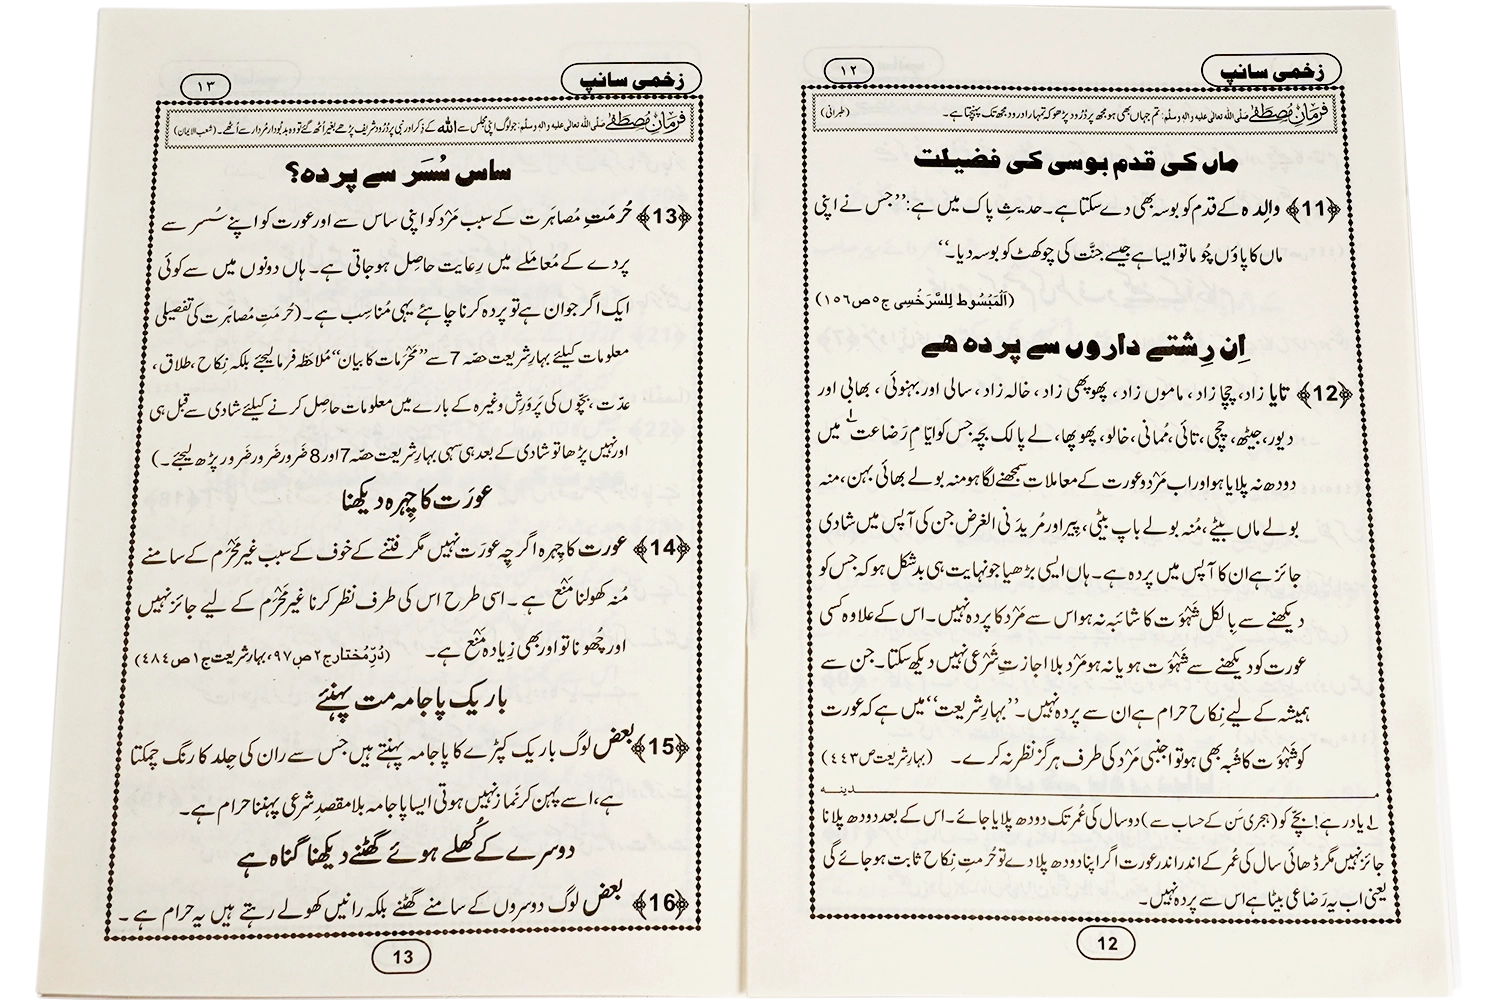 زخمی سانپ
۱۲
فرمانِ مُصطَفٰے صلَّی اللہ تعالٰی علیہ واٰلہٖ وسلَّم: تم جہاں بھی ہو مجھ پر دُرُود پڑھو کہ تمہارا درود مجھ تک پہنچتا ہے۔ (طبرانی)
ماں کی قدم بوسی کی فضیلت
﴿11﴾ والِدہ کے قدم کو بوسہ بھی دے سکتا ہے۔ حدیثِ پاک میں ہے: ’’جس نے اپنی
ماں کا پاؤں چُوما تو ایسا ہے جیسے جنَّت کی چوکھٹ کو بوسہ دیا۔‘‘
(اَلْمَبْسُوط لِلسَّرَخْسِی ج۵ ص۱۵۶)
اِن رِشتے داروں سے پردہ ہے
﴿12﴾ تایا زاد، چچا زاد، ماموں زاد، پھوپھی زاد، خالہ زاد، سالی اور بہنوئی، بھابی اور
دیور، جیٹھ، چچی، تائی، مُمانی، خالو، پھوپھا، لے پالک بچہ جس کو ایّامِ رَضاعت۱ میں
دودھ نہ پلایا ہو اور اب مَرْد و عورت کے معاملات سمجھنے لگا ہو منہ بولے بھائی بہن، منہ
بولے ماں بیٹے، مُنہ بولے باپ بیٹی، پیر اور مُریدَنی الغرض جن کی آپس میں شادی
جائز ہے ان کا آپس میں پردہ ہے۔ ہاں ایسی بڑھیا جو نہایت ہی بدشکل ہو کہ جس کو
دیکھنے سے بِالکل شَہْوَت کا شائبہ نہ ہو اس سے مَرْد کا پردہ نہیں۔ اس کے علاوہ کسی
عورت کو دیکھنے سے شَہْوَت ہو یا نہ ہو مَرْد بلا اجازتِ شَرْعی نہیں دیکھ سکتا۔ جن سے
ہمیشہ کے لیے نِکاح حرام ہے ان سے پردہ نہیں۔ ’’بہارِ شریعت‘‘ میں ہے کہ عورت
کو شَہْوَت کا شُبہ بھی ہو تو اجنبی مَرْد کی طرف ہرگز نظر نہ کرے۔ (بہارِ شریعت ص۴۴۳)
مدینہ
۱ یاد رہے! بچّے کو (ہجری سَن کے حساب سے) دو سال کی عُمر تک دودھ پلایا جائے۔ اس کے بعد دودھ پلانا
جائز نہیں مگر ڈھائی سال کی عُمر کے اندر اندر عورت اگر اپنا دودھ پلا دے تو حُرمتِ نِکاح ثابت ہو جائے گی
یعنی اب یہ رَضاعی بیٹا ہے اس سے پردہ نہیں۔
12
زخمی سانپ
۱۳
فرمانِ مُصطَفٰے صلَّی اللہ تعالٰی علیہ واٰلہٖ وسلَّم: جو لوگ اپنی مجلس سے اللہ کے ذِکر اور نبی پر دُرُود شریف پڑھے بغیر اُٹھ گئے تو وہ بدبودار مُردار سے اُٹھے۔ (شعب الایمان)
ساس سُسَر سے پردہ؟
﴿13﴾ حُرمَتِ مُصاہَرَت کے سبب مَرْد کو اپنی ساس سے اور عورت کو اپنے سُسر سے
پردے کے مُعامَلے میں رِعایت حاصِل ہو جاتی ہے۔ ہاں دونوں میں سے کوئی
ایک اگر جوان ہے تو پردہ کرنا چاہئے یہی مُناسِب ہے۔ (حُرمَتِ مصاہَرَت کی تفصیلی
معلومات کیلئے بہارِ شریعت حصّہ 7 سے ’’مَحْرَمات کا بیان‘‘ مُلاحَظہ فرما لیجئے بلکہ نِکاح، طلاق،
عدّت، بچّوں کی پَروَرِش وغیرہ کے بارے میں معلومات حاصل کرنے کیلئے شادی سے قبل ہی
اور نہیں پڑھا تو شادی کے بعد ہی سہی بہارِ شریعت حصّہ 7 اور 8 ضَرور ضَرور ضَرور پڑھ لیجئے۔)
عورَت کا چِہرہ دیکھنا
﴿14﴾ عورت کا چِہرہ اگرچِہ عورَت نہیں مگر فتنے کے خوف کے سبب غیر مَحْرَم کے سامنے
مُنہ کھولنا مَنْع ہے۔ اسی طرح اس کی طرف نظر کرنا غیر مَحْرَم کے لیے جائز نہیں
اور چُھونا تو اور بھی زِیادہ مَنْع ہے۔ (دُرِّمُختار ج۲ ص۹۷، بہارِ شریعت ج۱ ص۴۸۴)
باریک پاجامہ مت پہنئے
﴿15﴾ بعض لوگ باریک کپڑے کا پاجامہ پہنتے ہیں جس سے ران کی جِلد کا رنگ چمکتا
ہے، اسے پہن کر نَماز نہیں ہوتی ایسا پاجامہ بلا مقصدِ شرعی پہننا حرام ہے۔
دوسرے کے کُھلے ہوئے گھٹنے دیکھنا گناہ ہے
﴿16﴾ بعض لوگ دوسروں کے سامنے گھٹنے بلکہ رانیں کھولے رہتے ہیں یہ حرام ہے۔
13